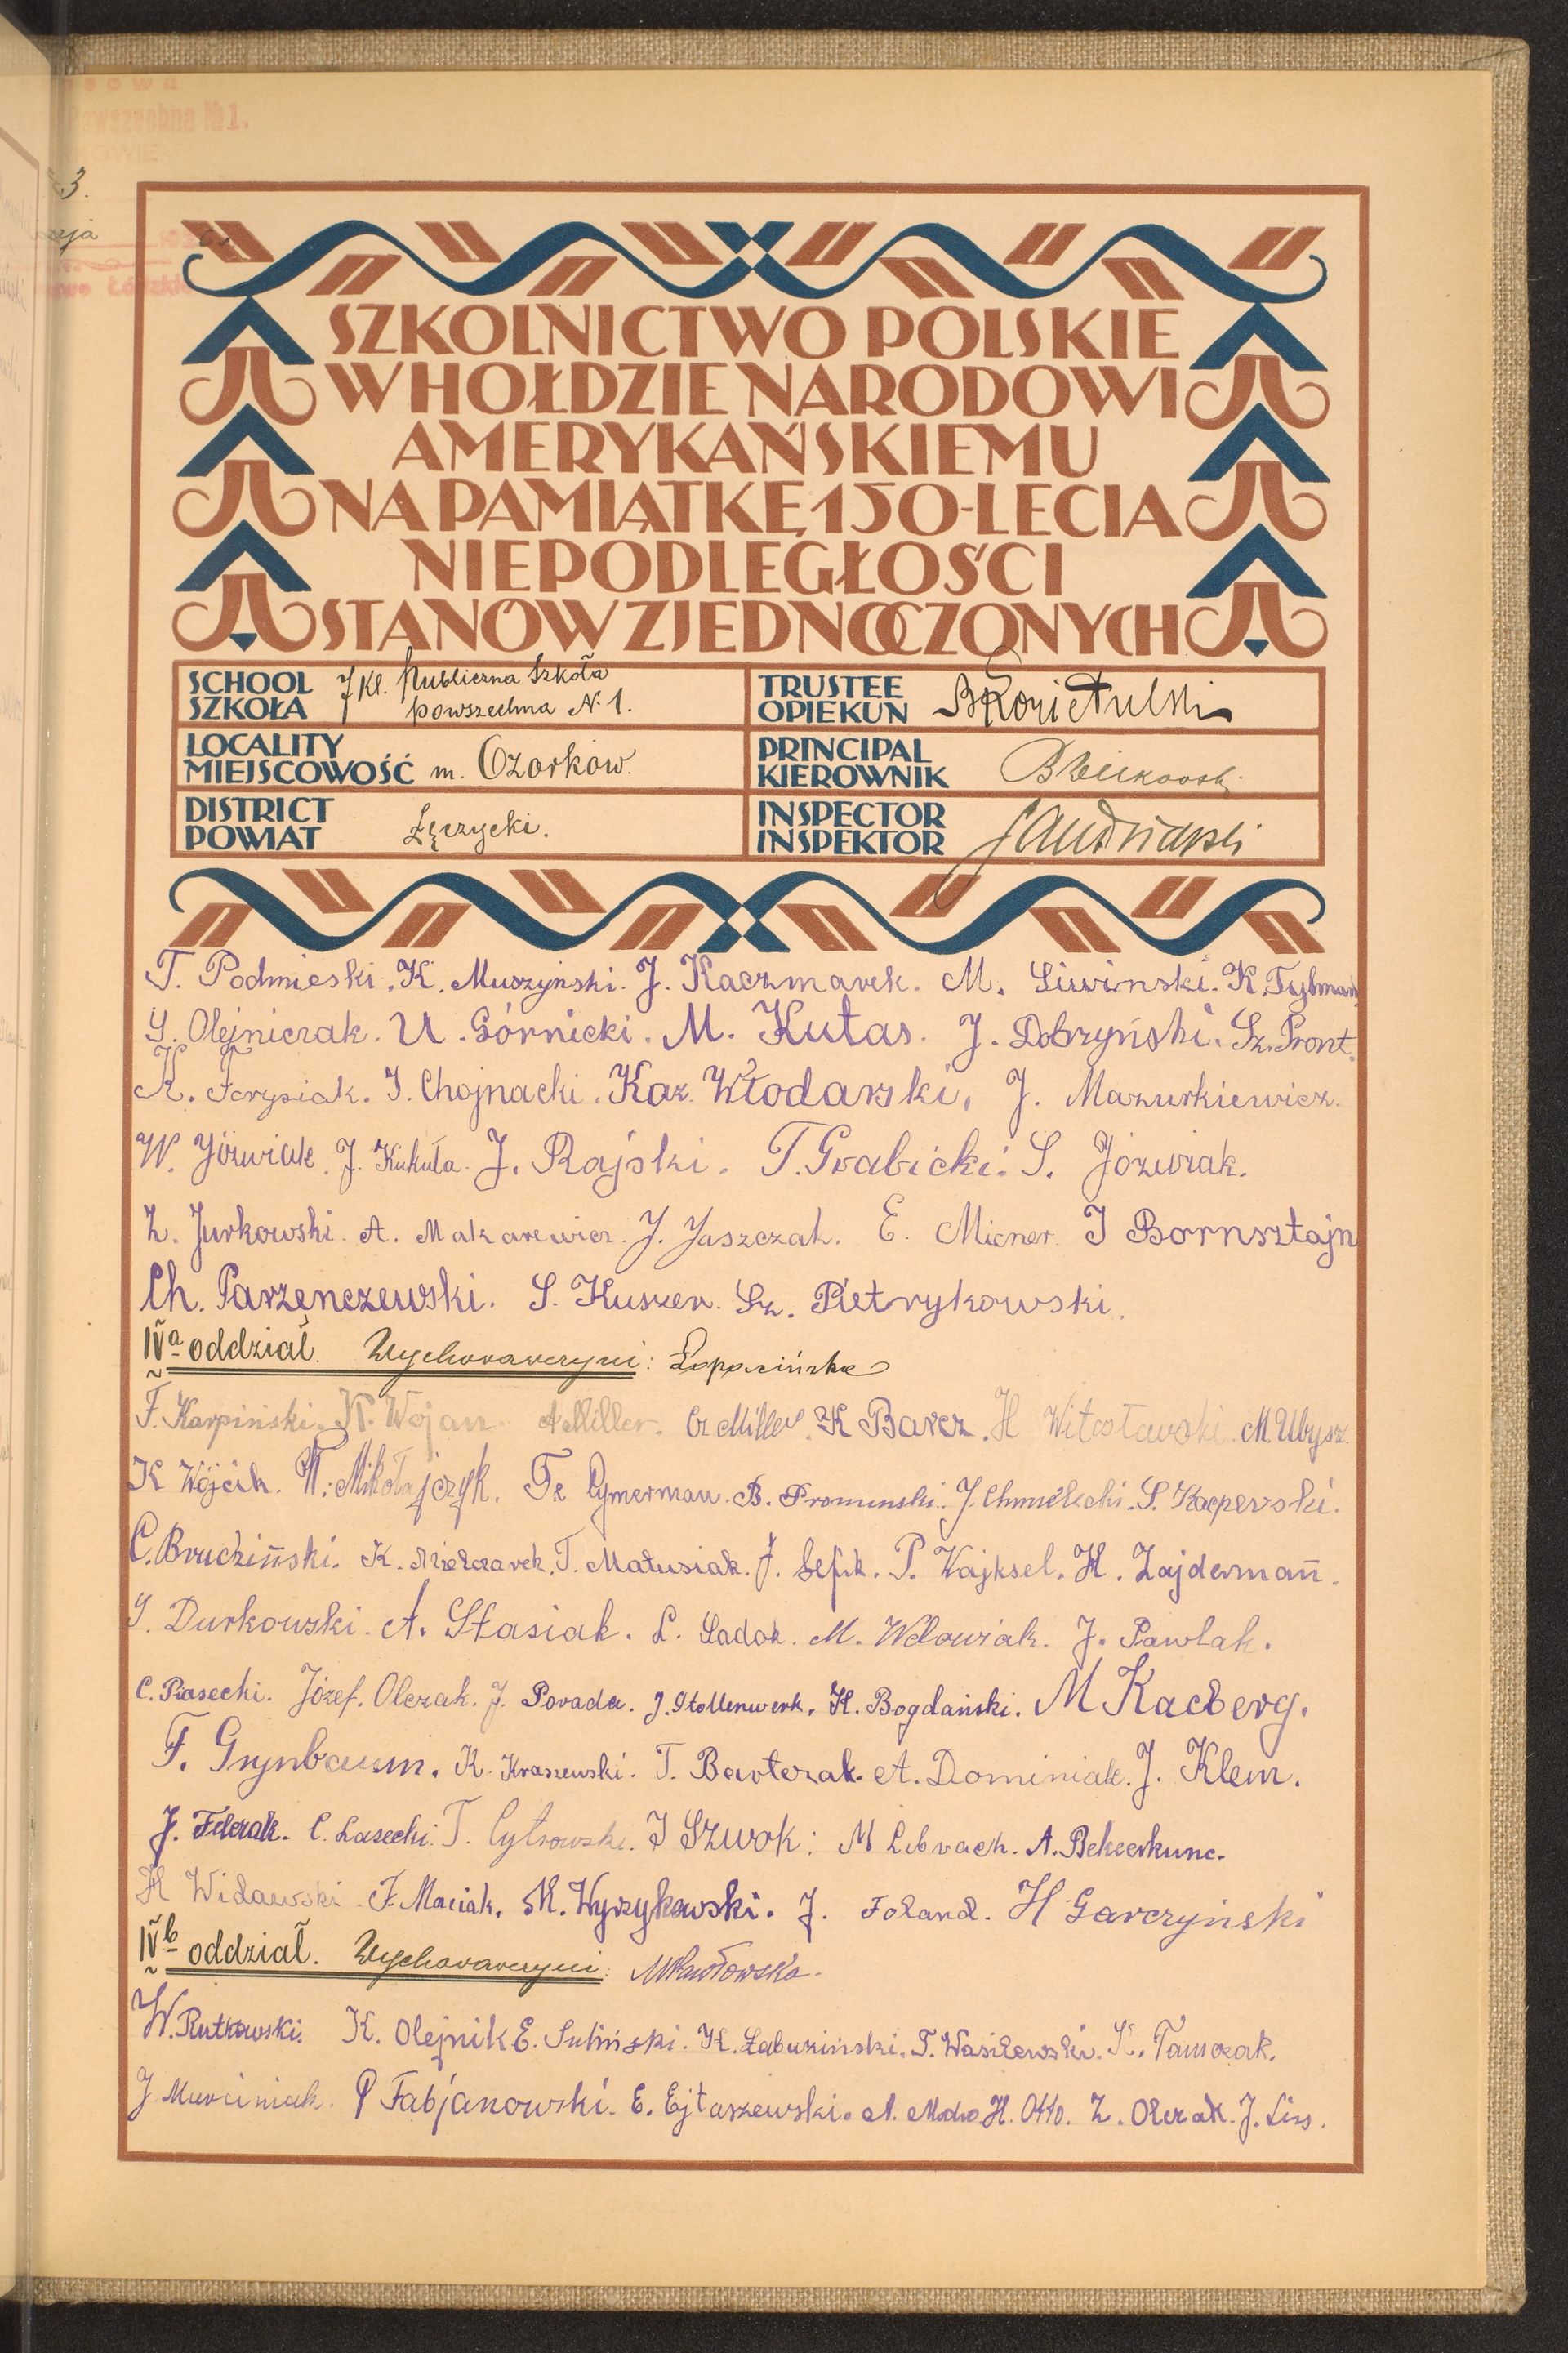 3.
SZKOLNICTWO POLSKIE
W HOŁDZIE NARODOWI
AMERYKAŃSKIEMU
NA PAMIĄTKĘ 150-LECIA
NIEPODLEGŁOŚCI
STANÓW ZJEDNOCZONYCH
SCHOOL SZKOŁA 7 kl. Publiczna Szkoła powszechna N. 1.
TRUSTEE OPIEKUN
LOCALITY MIEJSCOWOŚĆ m. Ozorków.
PRINCIPAL KIEROWNIK
DISTRICT POWIAT Łęczycki.
INSPECTOR INSPEKTOR
T. Podmieski. K. Muszyński. J. Kaczmarek. M. Liwinski. K. Tylman
S. Olejniczak. U. Górnicki. M. Kutas. J. Dobrzyński. Sz. Pront.
K. J. Chojnacki. Kaz. Włodarski. J. Mazurkiewicz.
W. Jóźwiak. J. Kukuła. J. Rajski. T. Grabicki. S. Jóźwiak.
Z. Jurkowski. A. Makarewicz. J. Jaszczak. E. Micner. I Bornsztajn
Ch. Parzenczewski. S. Kuszer. Sz. Pietrykowski.
IVa oddział. Wychowawczyni: Łopacińska
F. Karpiński. K. Wojan. A Miller. Cz Miller. K Barcz. H Witosławski. M. Ubysz.
K Wójcik. W. Mikołajczyk. Fr Cymerman. B. Prominski. J. Chmielecki. S. Kacperski.
C. Brudziński. K. T. Matusiak. J. Lefik. P. Wajksel. H. Zajdermań.
S. Durkowski. A. Stasiak. L. Ladok. M. J. Pawlak.
C. Piasecki. Józef. Olczak. J. Porada. J. Stollenwerk. K. Bogdański. M Kacberg.
F. Grynbaum. K. Kraszewski. T. Bartczak. A. Dominiak. J. Klem.
J. Felczak. C. Lasecki. T. Cytrowski. I Szwok. M Librach. A.
H Widawski. F. Maciak. M. Wyrzykowski. J. Foland. H Garczyński
IVb oddział. Wychowawczyni: MPawłowska.
W. Rutkowski. K. Olejnik E. Suliński. K. Łabuziński. T. Wasilewski. K. Tamczak.
J. Marciniak. P Fabjanowski. E. Ejtaszewski. A. H. Otto. Z. Olczak. J. Lis.